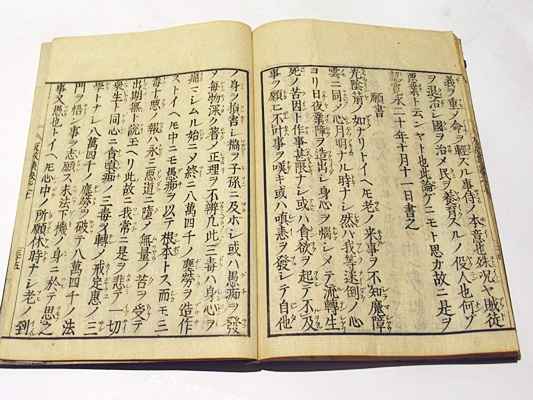 義ヲ重ノ命ヲ輕スル事侍ノ本意也殊況ヤ賊徒
ヲ退治シ國ヲ治メ民ヲ養育スルノ役人也何ゾ
惡業ト云ンヤト也此論ゲニモト思フ方故ニ是ヲ
寛永二十年十月十一日書之
願書
光陰箭ノ如ナリトイヘ𪜈老ノ來事ヲ不知魔障
雲ニ同ク心月明ナル時ナシ然ハ我等迷倒ノ心
ヨリ日夜業障ヲ造出シ身心ヲ惱シメテ流轉生
死ノ苦因ヲ作事甚限ナシ或ハ貪欲ヲ起テ不及
事ヲ願ヒ不叶事ヲ嘆キ或ハ嗔恚ヲ發シテ自他
ノ身ヲ損害シ禍ヲ子孫ニ及ホシ或ハ愚痴ヲ發
ヲ每物深ク著ノ正理ヲ不辨凡此三毒ノ身心ヲ
痛シムル始ニメ八萬四千ノ塵勞ヲ造作
ストイヘ𪜈中ニモ愚痴ヲ以テ根本トス而モ三
毒十惡ノ報ハ永三惡道ニ墮メ無量ノ苦ヲ受テ
出期無ト説玉ヘリ此故ニ我常ニ是ヲ悲テ一切
衆生ト同心ニ貪嗔痴ノ三毒ヲ轉ノ戒定惠ノ三
學トナシ八萬四千ノ塵勞ヲ破テ八萬四千ノ法
門ヲ悟シ事ヲ志願ス末法下機ノ身ニ於テ思之
事又愚也トイヘ𪜈心中ノ所願休時ナシ老ノ到